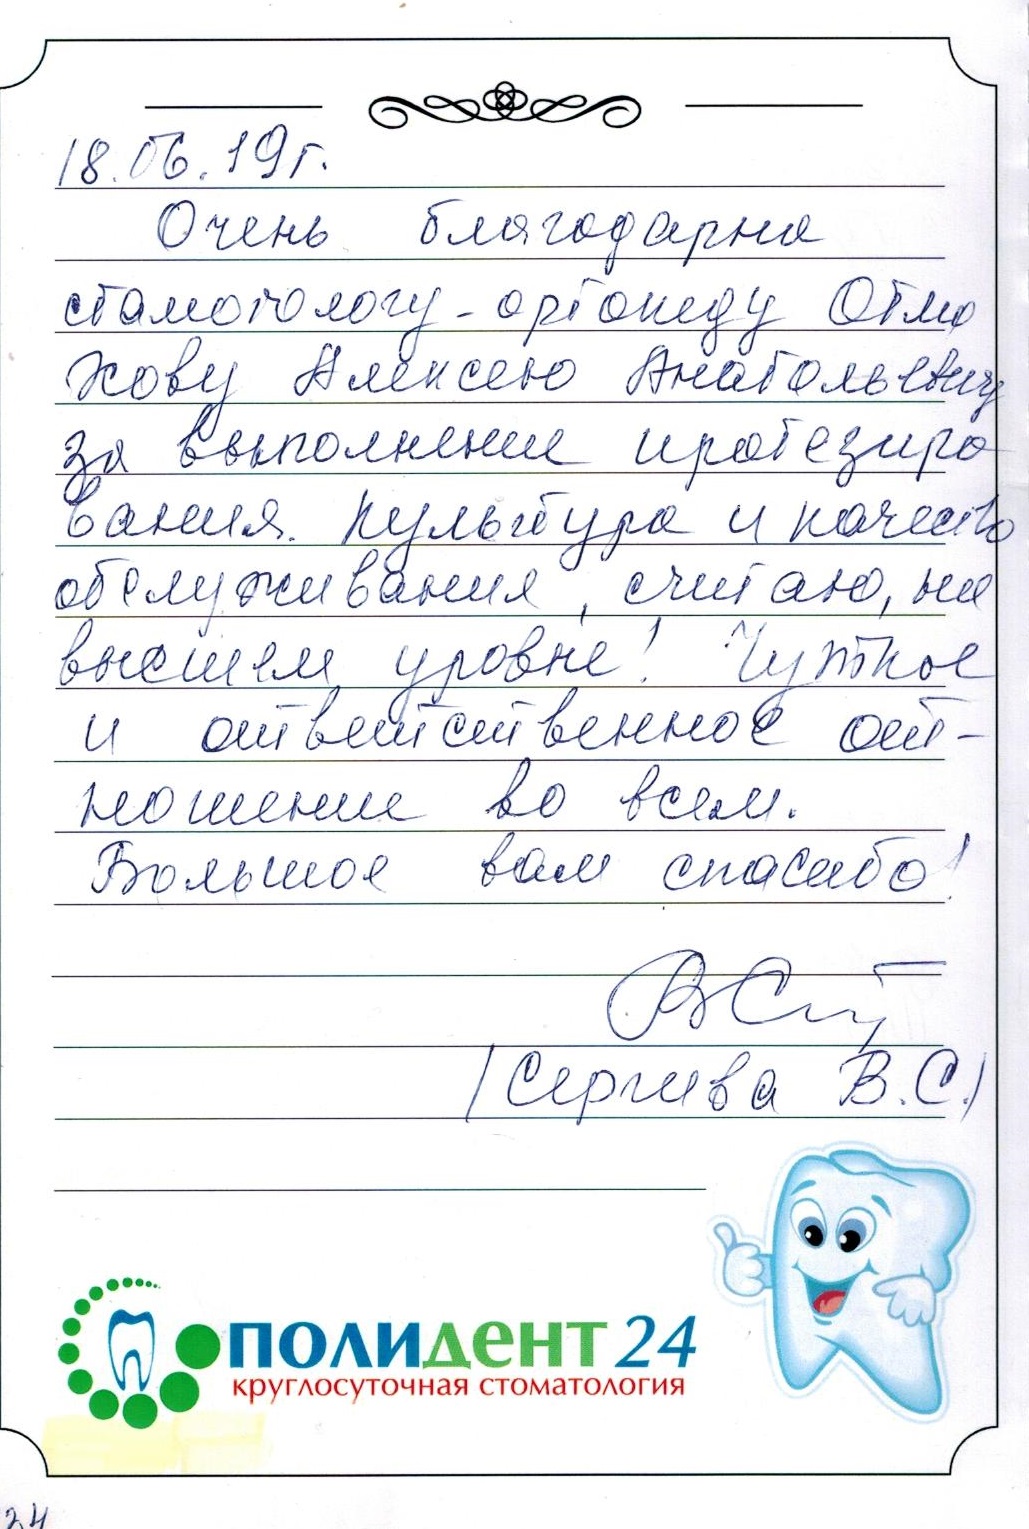 18.06.19г.
Очень благодарна
стамотологу-ортопеду Отмо
хову Алексею Анатольевичу
за выполнение протезиро
вания. Культура и качество
обслуживания, считаю, на
высшем уровне! Чуткое
и ответственное от-
ношение во всем.
Большое вам спасибо!
/Сергиева В.С./
ПОЛИДЕНТ 24
круглосуточная стоматология
24